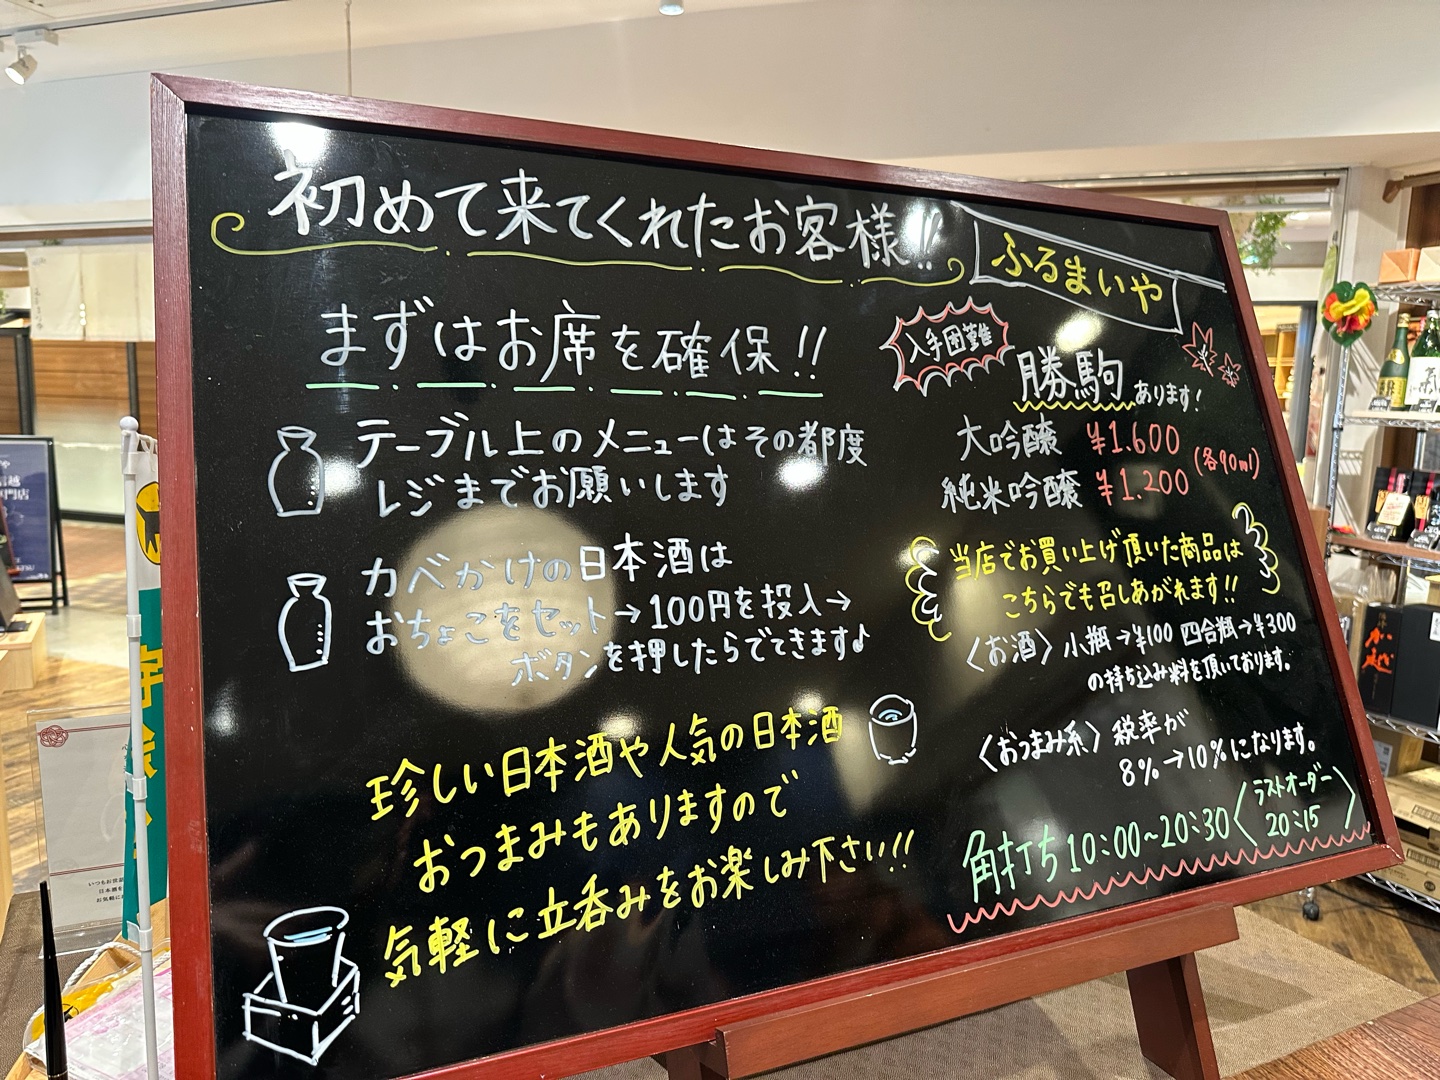 初めて来てくれたお客様!!
まずはお席を確保!!
テーブル上のメニューはその都度
レジまでお願いします
カベかけの日本酒は
おちょこをセット→100円を投入→
ボタンを押したらでてきます♪
珍しい日本酒や人気の日本酒
おつまみもありますので
気軽に立呑みをお楽しみ下さい!!
ふるまいや
入手困難
勝駒あります!
大吟醸 ¥1.600
純米吟醸 ¥1.200
(各90ml)
当店でお買い上げ頂いた商品は
こちらでも召しあがれます!!
〈お酒〉小瓶→¥100 四合瓶→¥300
の持ち込み料を頂いております。
〈おつまみ系〉税率が
8%→10%になります。
角打ち10:00~20:30〈ラストオーダー
20:15〉
いつもお世話
日本酒を
お気軽に